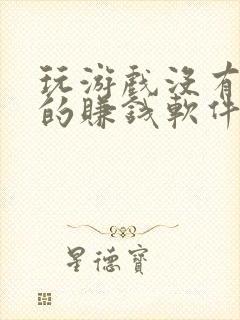 玩游戲沒有
的賺錢軟件
星德寶